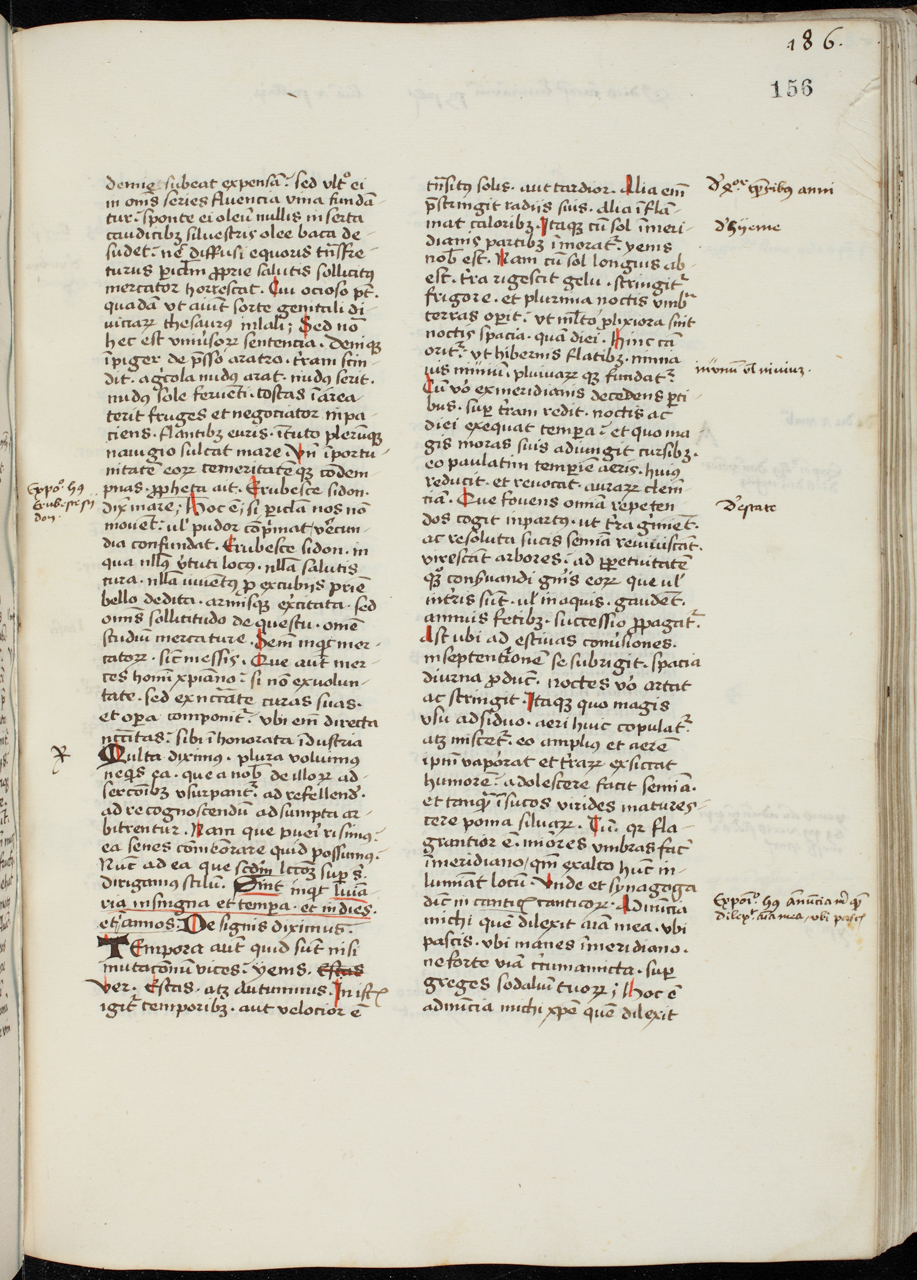 186.
156
denuo subeat expensā. sed vltº ei
in om̄s series fluencia vina fundā
tur. sponte ei oleū nullis inserta
caudicibꝫ siluestris olee baca de
sudet. nec̄ diffusi equoris trāsfre
turus pericl̄m ꝓprie salutis sollicitꝰ
mercator horrescat. Cui ocioso pt̄.
quadā ut aiūt sorte genitali di
uiciaꝝ thesaurꝰ illabi; Sed nō
hec est vniusoꝝ sentencia. Deniqꝫ
īpiger de p̄sso aratro. tr̄am scin
dit. ag̓cola nudꝰ arat. nudꝰ serit.
nudꝰ sole feruēti. tostas ī area
terit fruges et negociator īpa
ciens. flantibꝫ euris. ītuto plerūqꝫ
nauigio sulcat mare. Vn̄ īportu
nitatē eoꝝ temeritatēqꝫ cōdem
pnās. ꝓpheta ait. Erubesce sidon.
dix̄ mare; Hoc ē; si ꝑicl̄a nos nō
mouēt. ul̓ pudor cōp̓mat. v̓ecun
dia confundat. Erubesce sidon. in
qua nllꝰ v̓tuti locꝰ. nll̄a salutis
cura. nll̄a iuuētꝰ ꝑ excubijs pr̓ie
bello dedita. armisqꝫ ex̓citata. sed
om̄is sollicitudo de questu. om̄e
studiū mercature. Semē inqͥt mer
catoꝝ. sic̄ messis. Que aut̄ mer
ces homī xpiano. si nō ex volun
tate. sed ex nccīate curas suas.
et oꝑa componit᷑. vbi em̄ directa
nccītas. sibi īhonorata īdustria
Multa diximꝰ. plura volumus
neqꝫ ea. que a nob̄ de illoꝝ ad
sercōibꝫ vsurpant᷑. ad refellend̓.
ad recognoscendū adsumpta ar
bitrentur. Nam que pueri risimꝰ.
ea senes cōmēorare quid possumꝰ.
Nūc ad ea que scdm̄ lccōꝫ suꝑ s̄.
dirigamus stilū. Sint inqͥt luīa
ria in signa et temꝑa. et in dies.
et annos. De signis diximus.
Tempora aut̄ quid sūt nisi
mutacōnū vices. yems. Estas
Ver. Estas. atꝫ Autumnus. In ist̓
igit᷑ temporibꝫ. aut velocior ē
trn̄sitꝰ solis. aut tardior. Alia em̄
p̄stringit radiis suis. Alia īflā
mat caloribꝫ. Itaqꝫ cū sol īmeri
dianis partibꝫ īmorat᷑. yems
nob̄ est. Nam cū sol longius ab
est. tr̄a rigescit gelu. stringit᷑
frigore. et plurima noctis vmb̓
terras oꝑit. ut ml̄to ꝓlixiora sint
noctis spacia. quā diei. Hinc cā
orit᷑. ut hibernis flatibꝫ. nimia
Cū v̓o ex meridianis decedens ꝑti
bus. suꝑ tr̄am redit. noctis ac
diei exequat temꝑa. et quo ma
gis moras suis adiungit cursibꝫ.
eo paulatim temꝑiē aeris. huiꝰ
reducit. et revocat auraꝝ clem̄
ciā. Que fovens om̄ia repeten
dos cogit in partꝰ. ut tr̄a g̓minet.
ac resoluta sulcis semīa reuiuiscāt.
virescant arbores. ad ꝑpetuitatē
qͦꝫ conseruandi gn̄is eoꝝ que ul̓
in tr̄is sūt. ul̓ in aquis. gaudēt.
annuis fetibꝫ. successio ꝓpagat᷑.
Ast ubi ad estiuas conu̓siones.
in septentrionē se subrigit. spacia
diurna ꝓducit. noctes v̓o artat
ac stringit. Itaqꝫ quo magis
vsu adsiduo. aeri huic copulat᷑.
atꝫ miscet᷑. eo ampliꝰ et aerē
ipm̄ vaporat et trāꝝ exsiccat
humorē. adolescere facit semīa.
et tanqͣ ī sucos virides matures
cere poma siluaꝝ. Tū. qꝛ fla
grantior ē. īnores vmbras fac̄
ī meridiano, qm̄ ex alto hūc in
lumīat locū. Vnde et synagoga
dic̄ in cantic̓ canticoꝝ. Adnūcia
michi quē dilexit aīa mea. vbi
pascis. vbi manes ī meridiano.
ne forte uiā circumamicta. suꝑ
greges sodaliū tuoꝝ; Hoc ē
adnūcia michi xpē quē dilexit
d̓ yeme
D̓ estate
Expoº. hꝰ
Erub. sc̄ si
don.